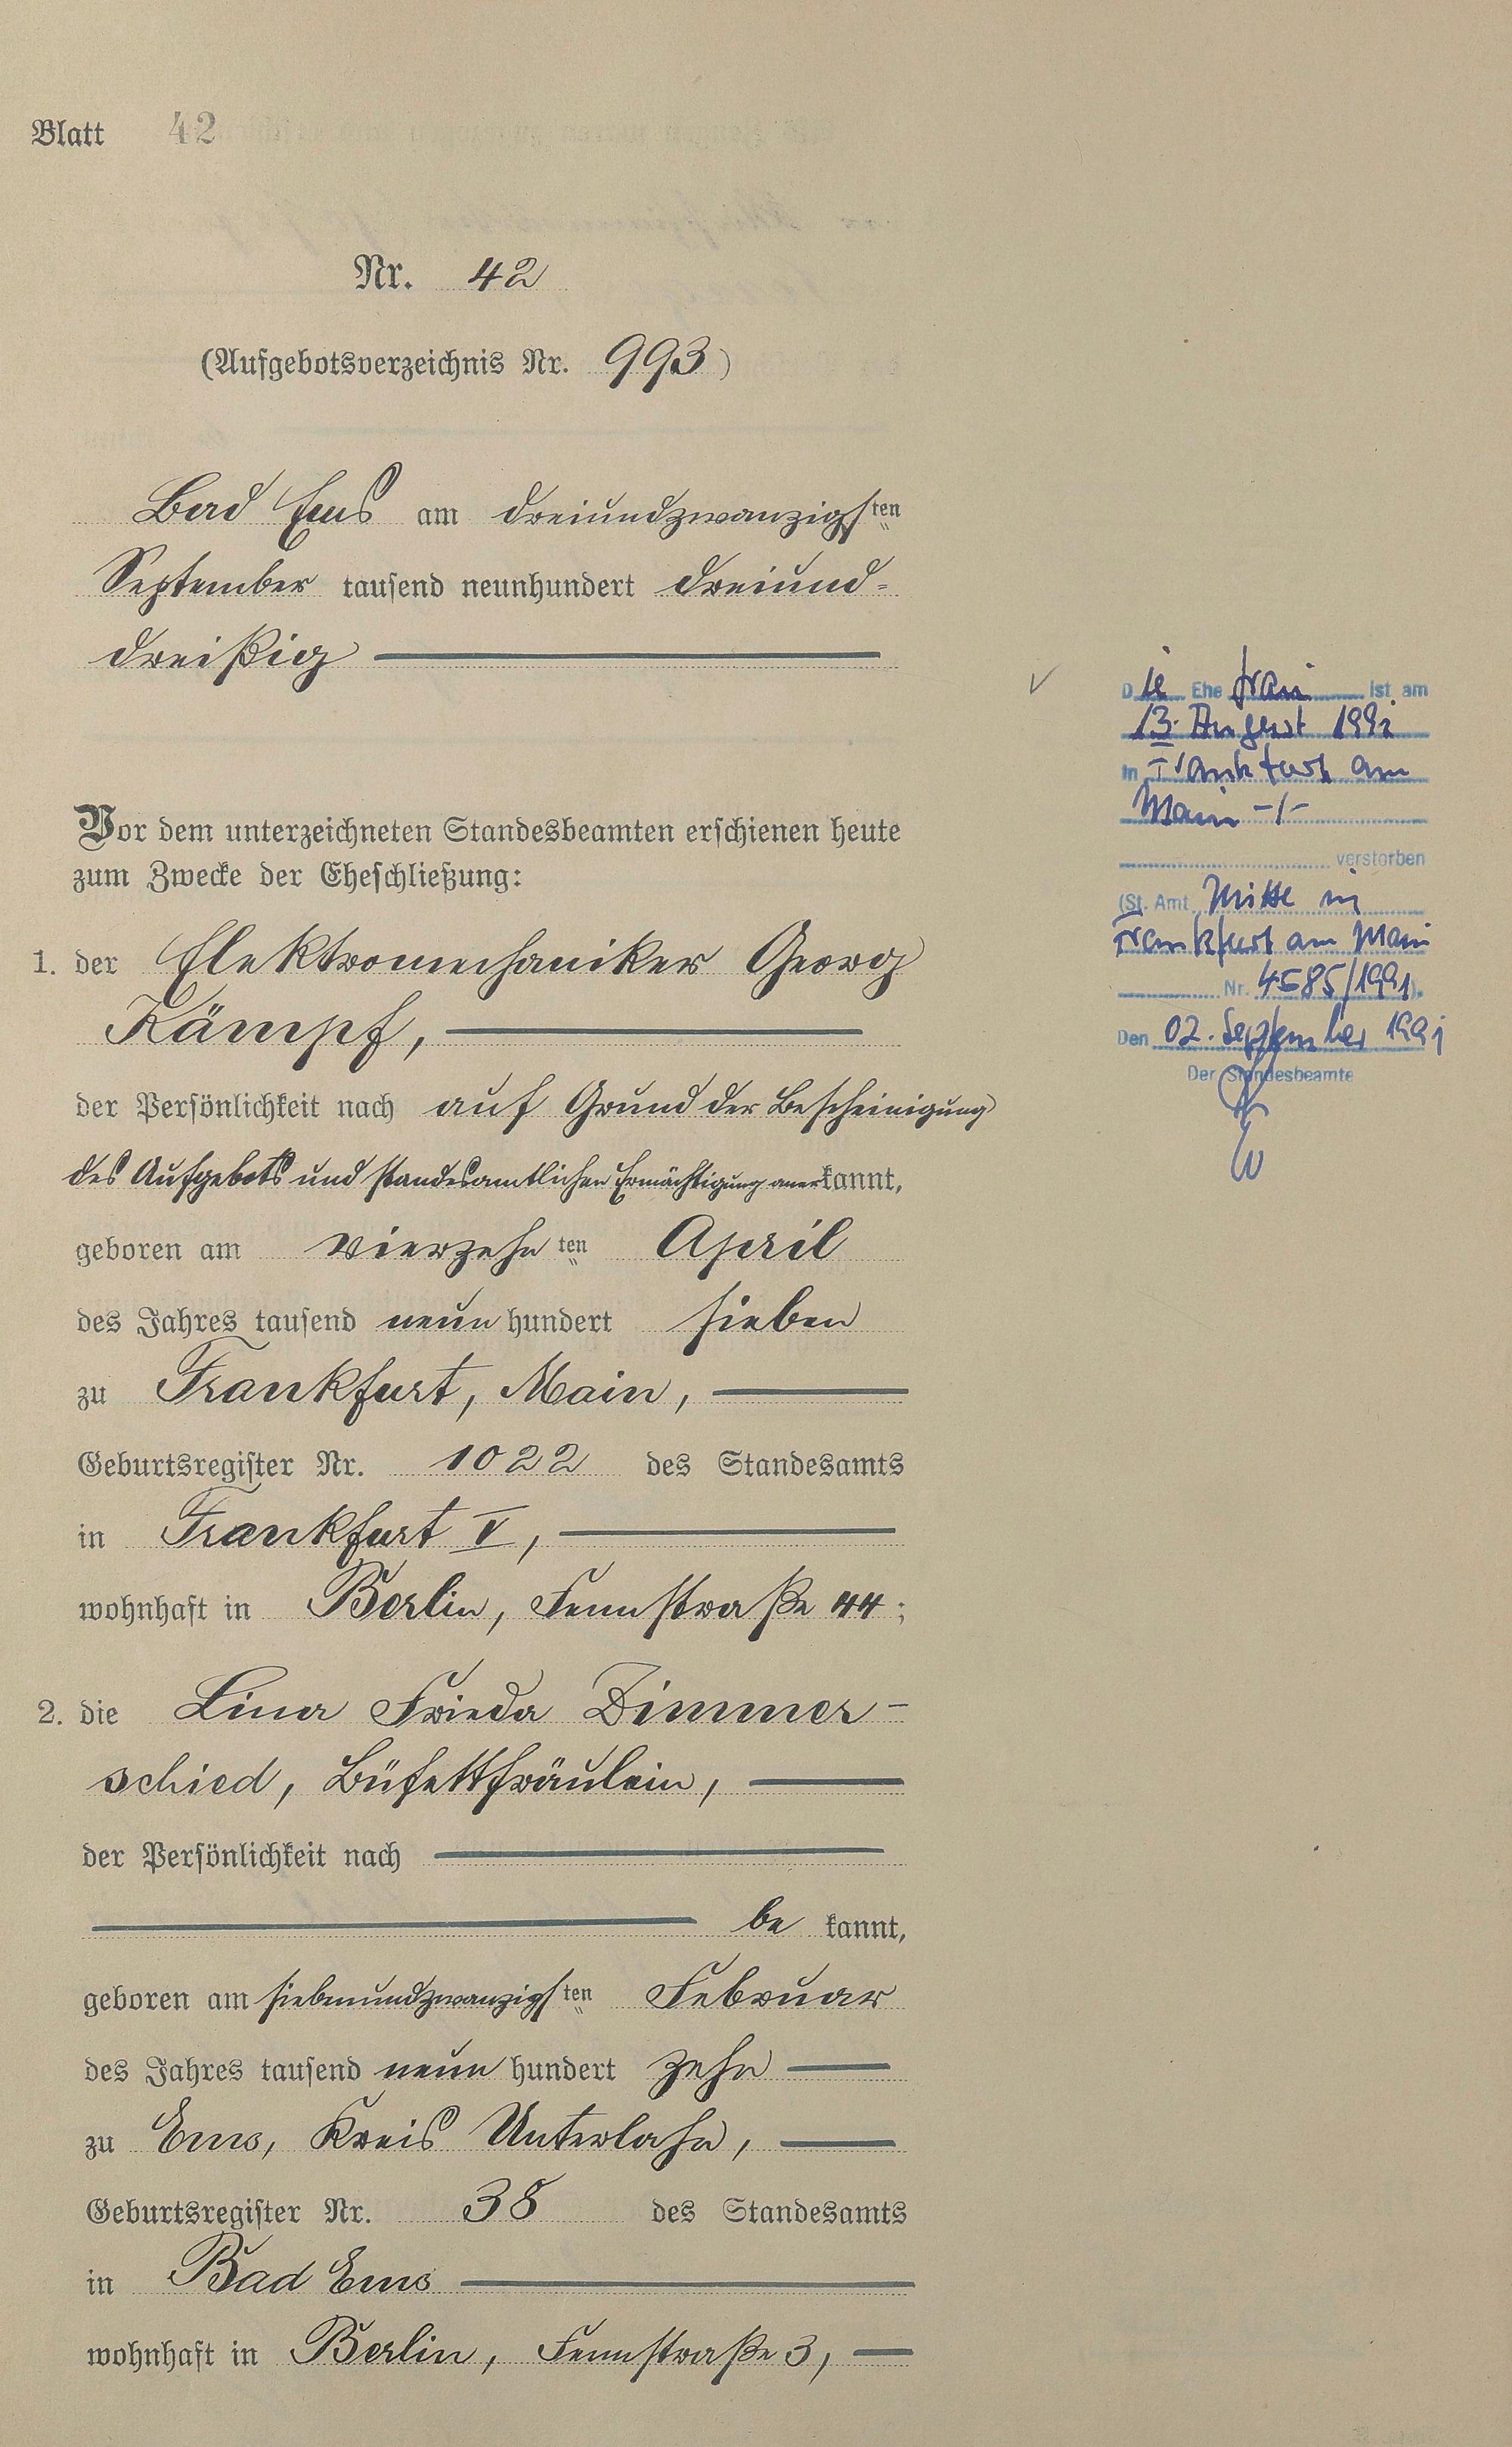 Blatt 42
Nr. 42
(Aufgebotsverzeichnis Nr. 993)
Bad Ems am dreiundzwanzigsten
September tausend neunhundert dreiund=
dreißig
Vor dem unterzeichneten Standesbeamten erschienen heute
zum Zwecke der Eheschließung:
1. der Elektromechaniker Georg
Kämpf,
der Persönlichkeit nach auf Grund der Bescheinigung
des Aufgebots und standesamtlichen Ermächtigung anerkannt,
geboren am vierzehnten April
des Jahres tausend neun hundert sieben
zu Frankfurt, Main,
Geburtsregister Nr. 1022 des Standesamts
in Frankfurt V,
wohnhaft in Berlin, Fennstraße 44;
2. die Lina Frieda Zimmer-
schied, Büfettfräulein,
der Persönlichkeit nach
be kannt,
geboren am siebenundzwanzigsten Februar
des Jahres tausend neun hundert zehn
zu Ems, Kreis Unterlahn,
Geburtsregister Nr. 38 des Standesamts
in Bad Ems
wohnhaft in Berlin, Fennstraße 3,
Die Ehefrau ist am
13. August 1991
in Frankfurt am
Main -/-
verstorben
(St. Amt Mitte in
Frankfurt am Main
Nr. 4585/1991).
Den 02. September 1991
Der Standesbeamte